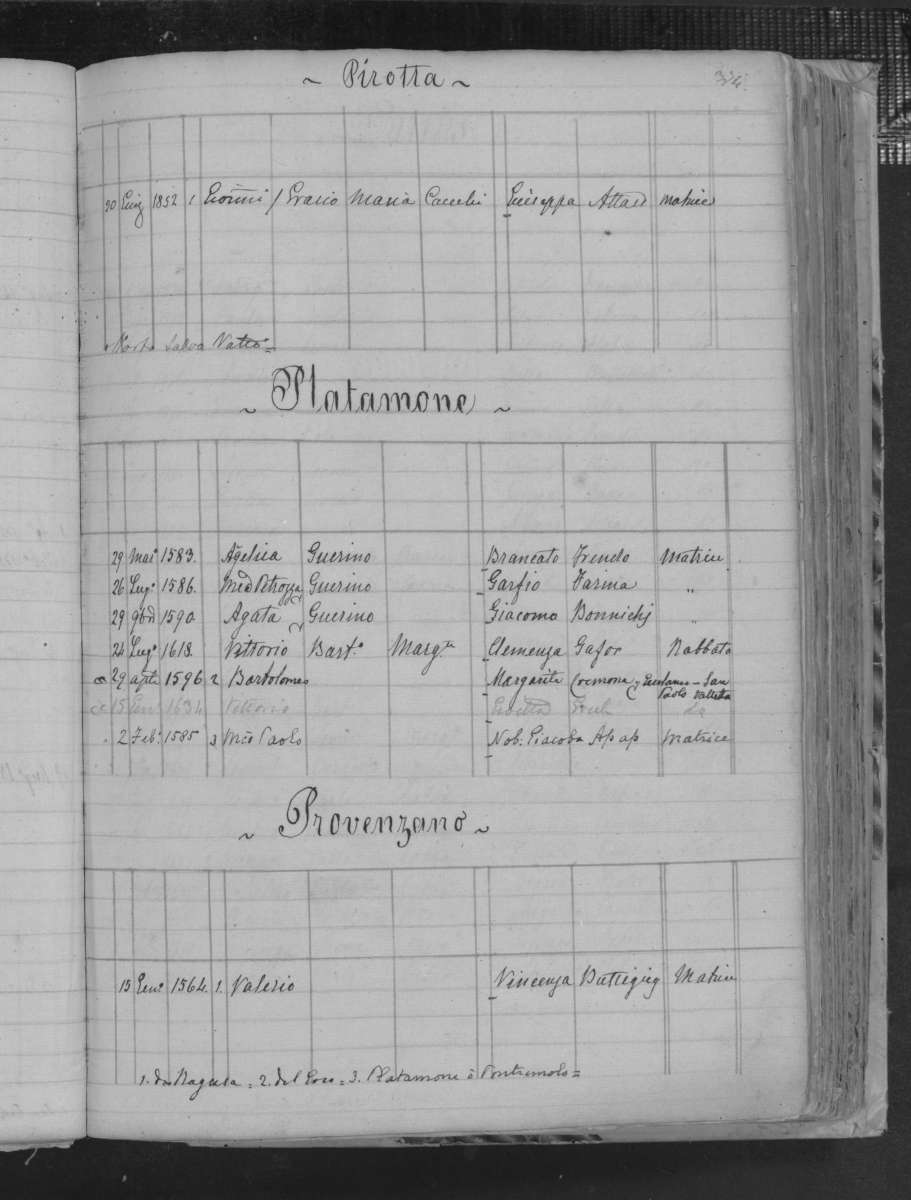 ~ Pirotta ~
20 Giug 1852 1 Gioānni / Grazio Maria Camilli Giuseppa Attard Matrice
~ Platamone ~
29 Mar° 1583. Āgelica Guerino Brancato Frendo Matrice
26 Lug° 1586. Guerino Garfio Farina "
29 9bre 1590 Agata Guerino Giacomo Bonnichi "
24 Lug° 1618. Vittorio Bart.° Marg.ta Clemenza Gafor Rabbato
29 1596 2 Bartolomeo Margarita Cremona San
Paolo Valletta
15 Gen 1634 Vittorio
2 Feb° 1585 3 Paolo Nob. Giacoba Apap Matrice
~ Provenzano ~
15 Gen° 1564. 1. Valerio Vincenza Battigieg Matrice
1. da Ragusa = 2. del Gozo = 3. Platamone ò Pontremolo =